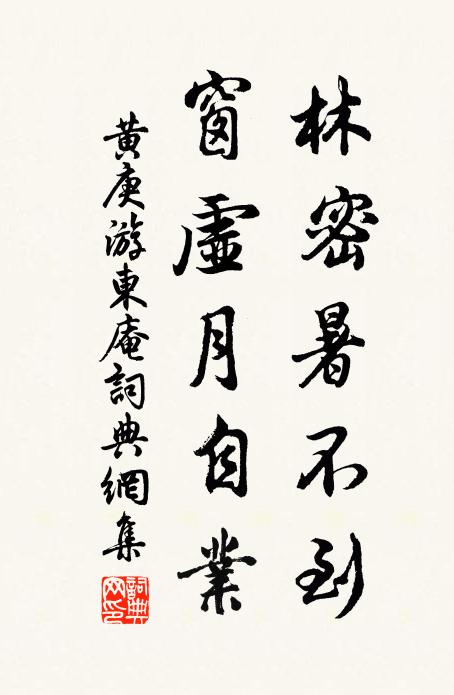 林密暑不到
窗虛月自業
黃庚游東庵詞典網集
詞典網印